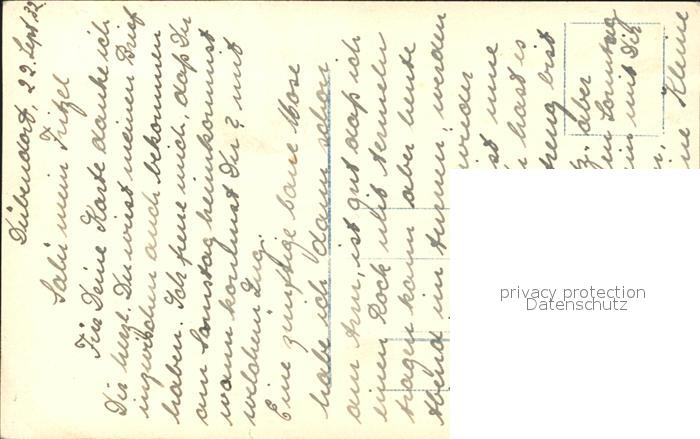 Dübendorf, 22. Sept. 32.
Salü mein Fritzel
Für Deine Karte danke ich
Dir herzl. Du wirst meinen Brief
inzwischen auch bekommen
haben. Ich freue mich, daß Du
am Samstag heimkommst
wann kommst Du? mit
welchem Zug.
Eine zünftige blaue Hose
habe ich dann schon
am Arm, ist gut daß ich
einen Rock mit Aermeln
tragen kann aber heute
Abend im turnen, werden
wieder
ist me
hast is
streng bist
aber
Sonntag
mit Dir
Kleine
privacy protection
Datenschutz